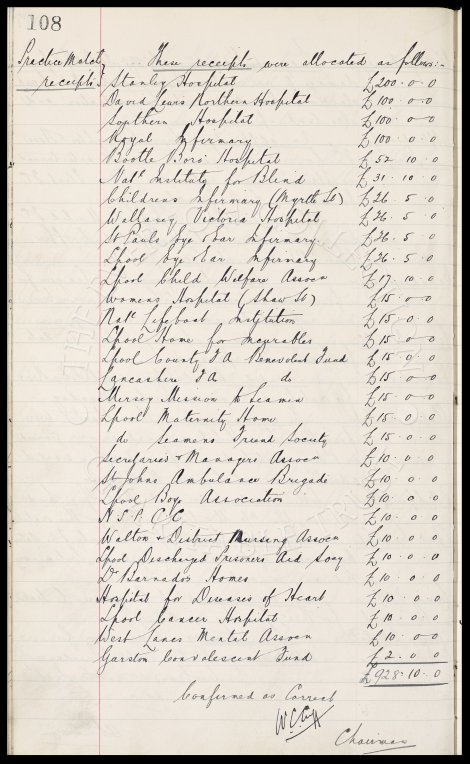 108
Practice Match These receipts were allocated as follows:-
receipts
Stanley Hospital £200.0.0
David Lewis Northern Hospital £100.0.0
Southern Hospital £100.0.0
Royal Infirmary £100.0.0
Bootle Boro' Hospital £52.10.0
Natl Institute for Blind £31.10.0
Childrens Infirmary (Myrtle St) £26.5.0
Wallasey Victoria Hospital £26.5.0
St Pauls Eye & Ear Infirmary £26.5.0
Lpool Eye & Ear Infirmary £26.5.0
Lpool Child Welfare Assocn £17.10.0
Womens Hospital (Shaw St) £15.0.0
Natl Lifeboat Institution £15.0.0
Lpool Home for Incurables £15.0.0
Lpool County F A Benevolent Fund £15.0.0
Lancashire F A do £15.0.0
Mersey Mission to Seamen £15.0.0
Lpool Maternity Home £15.0.0
do Seamens Friend Society £15.0.0
Secretaries & Managers Assocn £10.0.0
St Johns Ambulance Brigade £10.0.0
Lpool Boys Association £10.0.0
N.S.P.C.C. £10.0.0
Walton & District Nursing Assocn £10.0.0
Lpool Discharged Prisoners Aid Socy £10.0.0
Dr Barnados Homes £10.0.0
Hospital for Diseases of Heart £10.0.0
Lpool Cancer Hospital £10.0.0
West Lancs Mental Assocn £10.0.0
Garston Convalescent Fund £2.0.0
£928.10.0
Confirmed as Correct
W.C. Cuff
Chairman